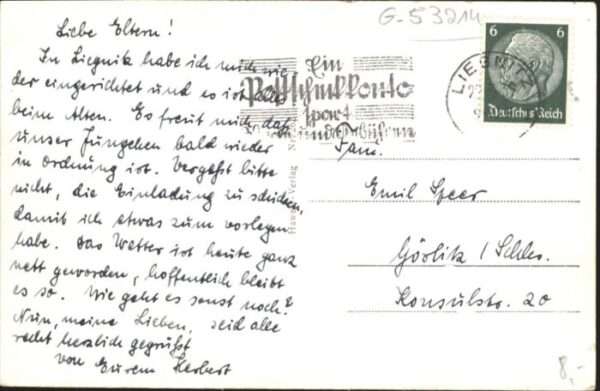 G-53214
Liebe Eltern!
In Liegnitz habe ich mich wie
der eingerichtet und es ist alles
beim Alten. Es freut mich, daß
unser Jungchen bald wieder
in Ordnung ist. Vergeßt bitte
nicht, die Einladung zu schicken,
damit ich etwas zum vorlegen
habe. Das Wetter ist heute ganz
nett geworden, hoffentlich bleibt
es so. Wie geht es sonst noch?
Nun, meine Lieben, seid alle
recht herzlich gegrüßt
von Eurem Herbert
Ein
Postscheckkonto
spart
und
LIEGNITZ
6 6
Deutsches Reich
Verlag
Fam.
Emil Speer
Görlitz / Schles.
Konsulstr. 20
8,-